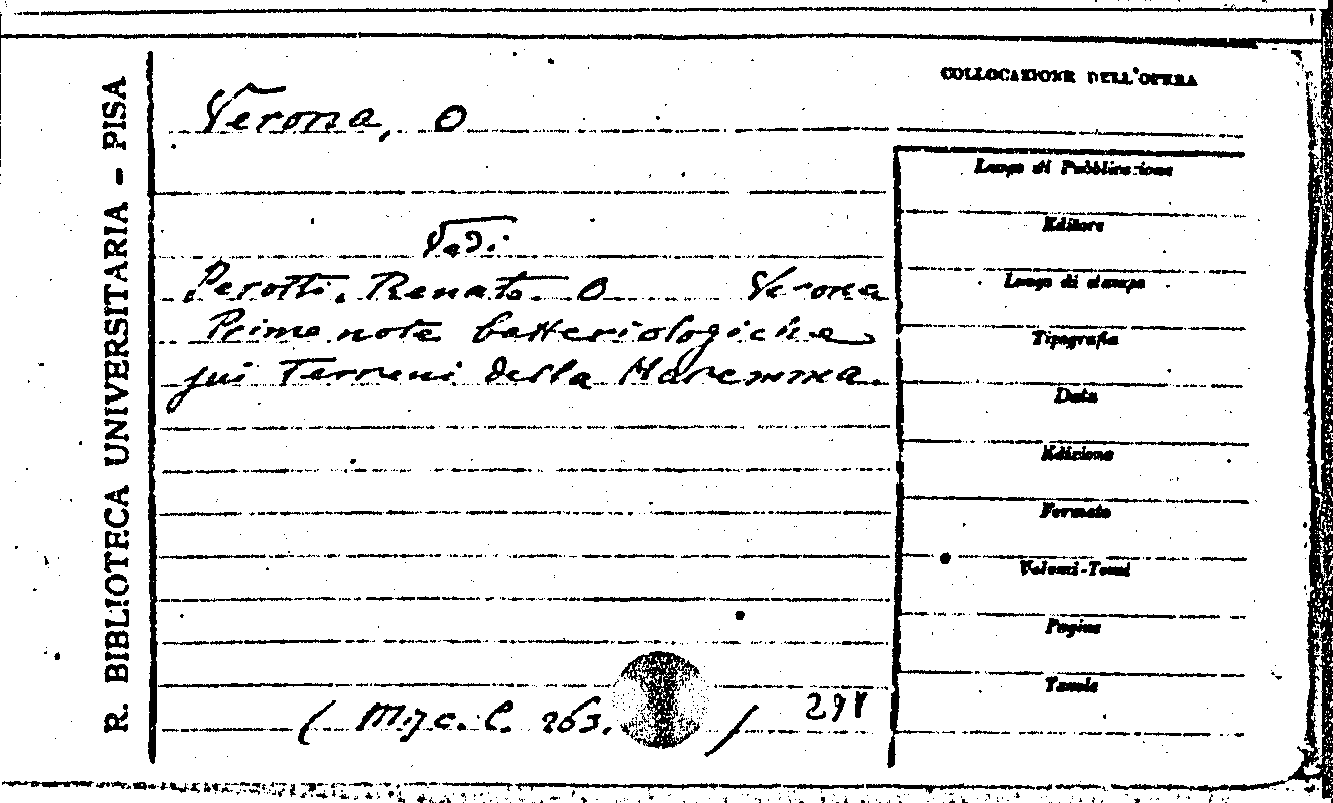 R. BIBLIOTECA UNIVERSITARIA - PISA
COLLOCAZIONE DELL'OPERA
Verona, O
Vedi
Perotti, Renato. O Verona
Prime note batteriologiche
sui Terreni della Maremma.
(Misc. C. 263. ) 298
Luogo di Pubblicazione
Editore
Luogo di stampa
Tipografia
Data
Edizione
Formato
Volumi-Tomi
Pagine
Tavole